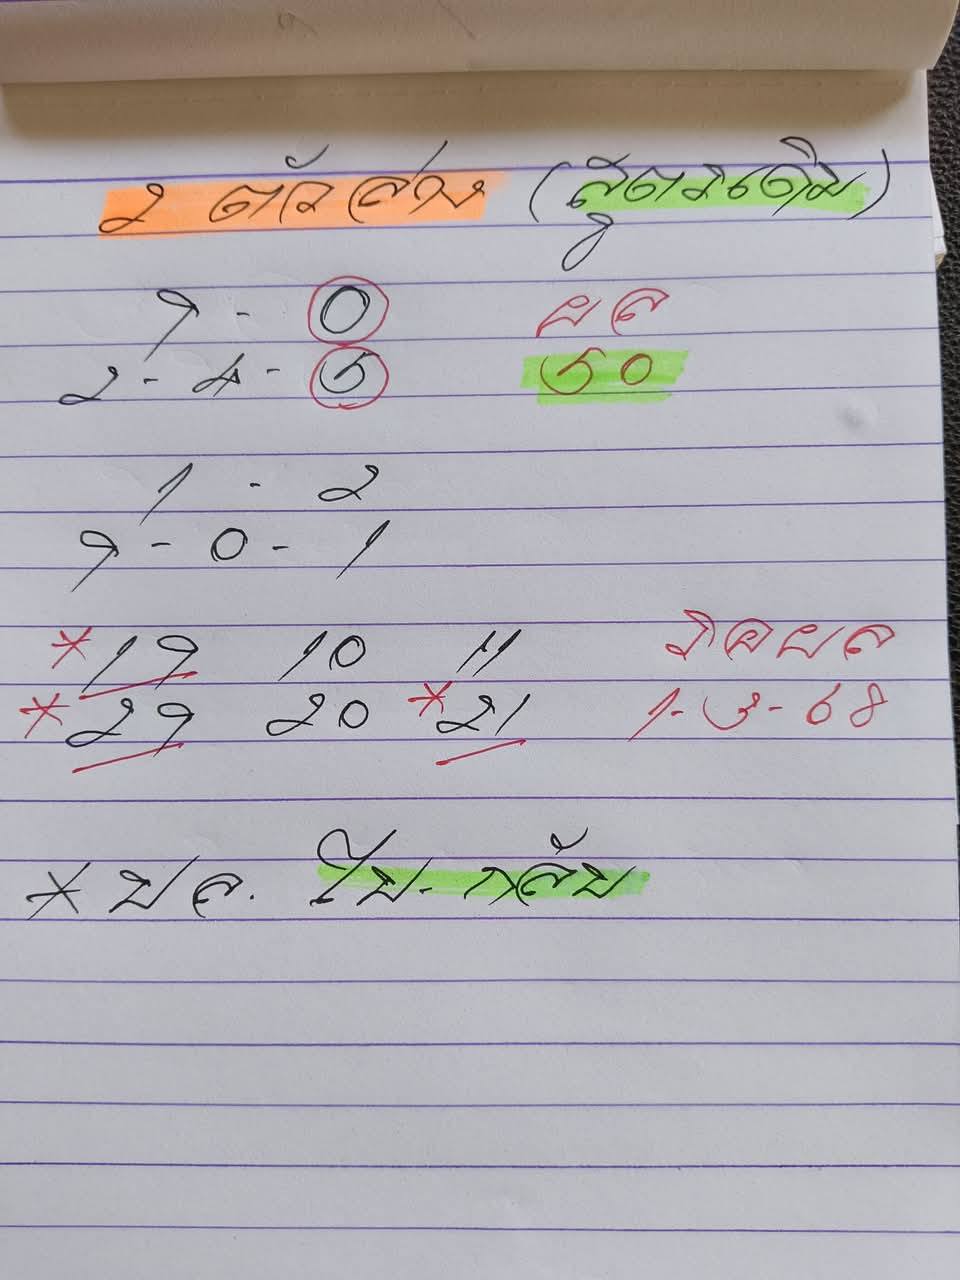 2 ตัวล่าง (สูตรเดิม)
9 - 0 ผล
2 - 4 - 5 50
1 - 2
9 - 0 - 1
*19 10 11 รอผล
*29 20 *21 1-3-68
* ปล. ไป-กลับ